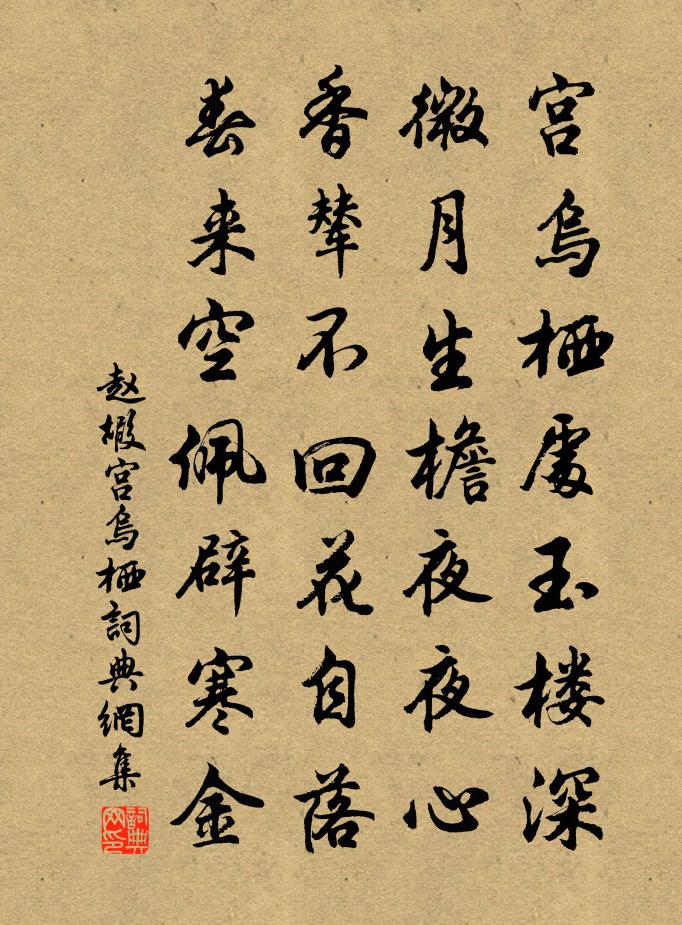 宫乌栖處玉楼深
微月生檐夜夜心
香辇不回花自落
春来空佩辟寒金
赵嘏宫乌栖詞典網集
詞典网印